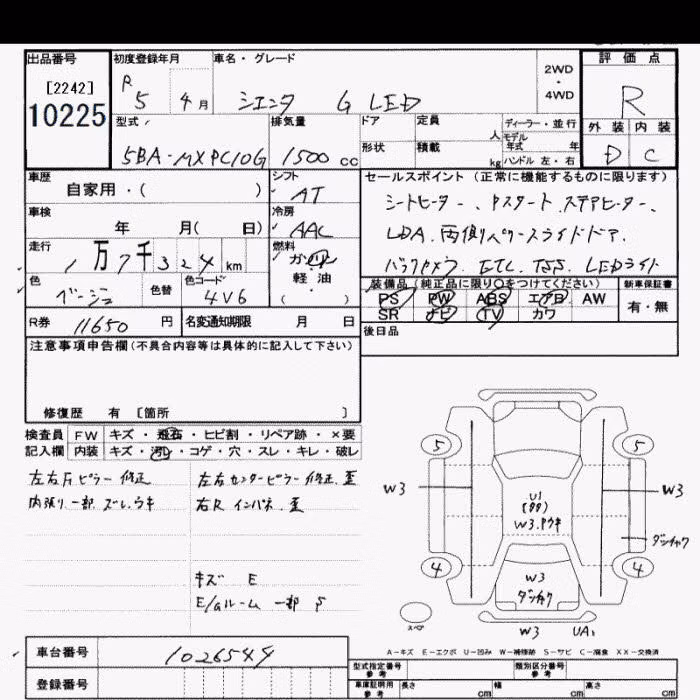 出品番号 初度登録年月 車名・グレード 評価点
[2242] R 5 4月 シエンタ G LED 2WD・4WD R
10225 型式 排気量 ドア 定員 人 ディーラー・並行 外装 内装
5BA-MXPC10G 1500cc 形状 積載 kg モデル年式 年 ハンドル 左・右 D C
車歴 シフト セールスポイント（正常に機能するものに限ります）
自家用・( ) AT シートヒーター、Pスタート、ステアヒーター、
車検 冷房
年 月( 日) AAC LDA、両側パワースライドドア、
走行 燃料
1万7千324km ガソリン バックカメラ、ETC、TSS、LEDライト
色 色替 色コード 軽油 装備品（純正品に限り○をつけてください） 新車保証書
ベージュ 4V6 ・( ) PS PW ABS エアB AW 有・無
R券 11650円 名変通知期限 月 日 SR ナビ TV カワ
注意事項申告欄(不具合内容等は具体的に記入して下さい) 後日品
修復歴 有 [箇所 ]
検査員 FW キズ・飛石・ヒビ割・リペア跡・×要
記入欄 内装 キズ・汚れ・コゲ・穴・スレ・キレ・破レ
左右Fピラー 修正 左右センターピラー 修正、歪
内張り一部 ズレ、ウキ 右R インパネ 歪
キズ E
E/gルーム 一部 S
5 5
W3 W3
U1
W3、Pウキ
ダンチャク
4 4
W3
ダンチャク
スペア
W3 UA1
A-キズ E-エクボ U-凹み W-補修跡 S-サビ C-腐食 XX-交換済
車台番号 1026549 型式指定番号 参考 類別区分番号 参考
登録番号 車庫証明用 参考 長さ cm 幅 cm 高さ cm